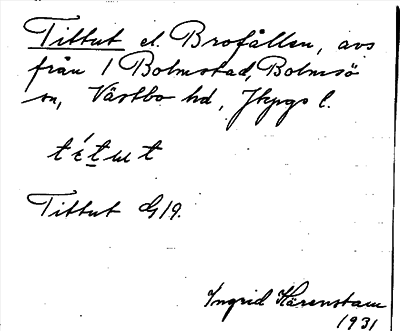 Tittut el. Brofällan, avs
från 1 Bolmstad, Bolmsö
sn, Västbo hd, Jkpgs l.
Tittut G19.
Ingrid Härenstam
1931